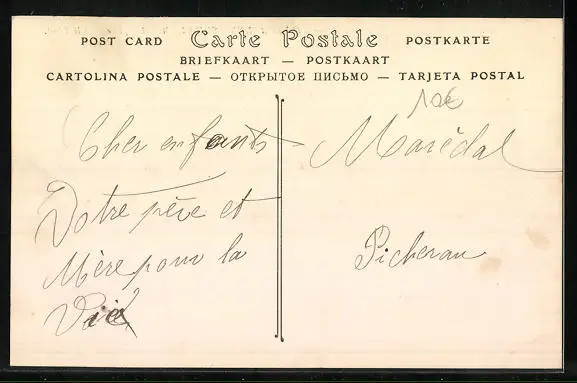 POST CARD Carte Postale POSTKARTE
BRIEFKAART — POSTKAART
CARTOLINA POSTALE — ОТКРЫТОЕ ПИСЬМО — TARJETA POSTAL
10€
Cher enfants
Votre père et
Mère pour la
Vie
Marèdal
Picherau